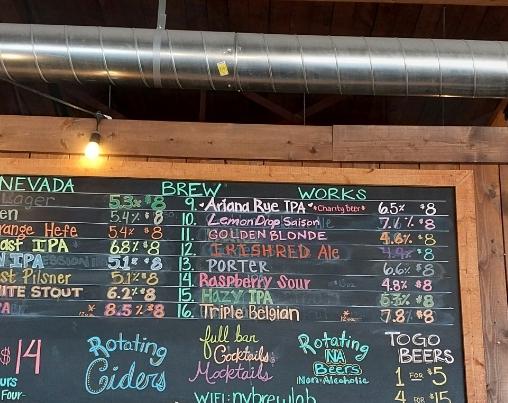 NEVADA BREW WORKS
Lager 5.3% $8 9. Ariana Rye IPA *Charity beer* 6.5% $8
en 5.4% $8 10. Lemon Drop Saison 7.1% $8
range Hefe 5.4% $8 11. GOLDEN BLONDE 4.8% $8
ast IPA 6.8% $8 12. IRISH RED Ale $8
IPA 5.1% $8 13. PORTER 6.6% $8
st Pilsner 5.1% $8 14. Raspberry Sour 4.8% $8
ITE STOUT 6.2% $8 15. Hazy IPA $8
PA 8.5% $8 16. Triple Belgian 7.8% $8
$14
Rotating
Ciders
full bar
Cocktails
Mocktails
Rotating
NA
Beers
Non-Alcoholic
TO GO
BEERS
1 FOR $5
4 FOR $15
urs
Four-
WIFI: nvbrewlab